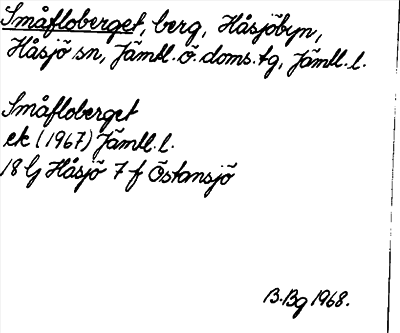 Småfloberget, berg, Håsjöbyn,
Håsjö sn, Jämtl. ö. doms. tg, Jämtl. l.
Småfloberget
ek (1967) Jämtl. l.
18 G Håsjö 7 f Östansjö
B. Bg 1968.